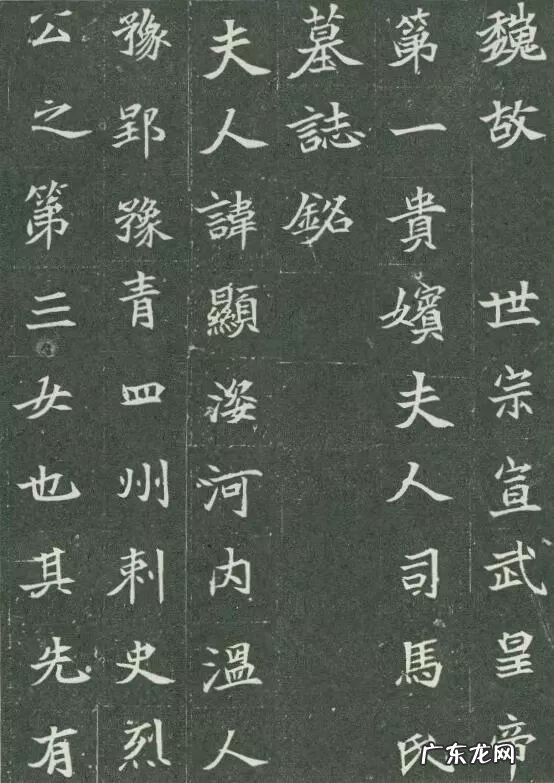 魏故 世宗宣武皇帝
第一貴嬪夫人司馬氏
墓誌銘
夫人諱顯姿河内温人
豫郢豫青四州刺史烈
公之第三女也其先有
广东龙网